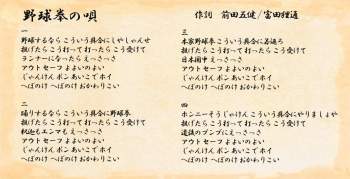 野球拳の唄
作詞 前田五健/富田狸通
一
野球するなら こういう具合にしやしゃんせ
投げたら こう打って 打ったらこう受けて
ランナーになったら えっさっさ
アウトセーフ よよいのよい
じゃんけん ポン あいこで ホイ
へぼのけ へぼのけ おかわりこい
二
踊りするなら こういう具合に野球拳
投げたら こう打って 打ったら こう受けて
釈迦もエンマも えっさっさ
アウトセーフ よよいのよい
じゃんけん ポン あいこで ホイ
へぼのけ へぼのけ おかわりこい
三
本家野球拳 こういう具合に若返ろ
投げたら こう打って 打ったらこう受けて
日本国中 えっさっさ
アウトセーフ よよいのよい
じゃんけん ポン あいこで ホイ
へぼのけ へぼのけ おかわりこい
四
ホンニーそうじゃ こういう具合にやりましょや
投げたら こう打って 打ったらこう受けて
道後のブンブに えっさっさ
アウトセーフ よよいのよい
じゃんけん ポン あいこで ホイ
へぼのけ へぼのけ おかわりこい